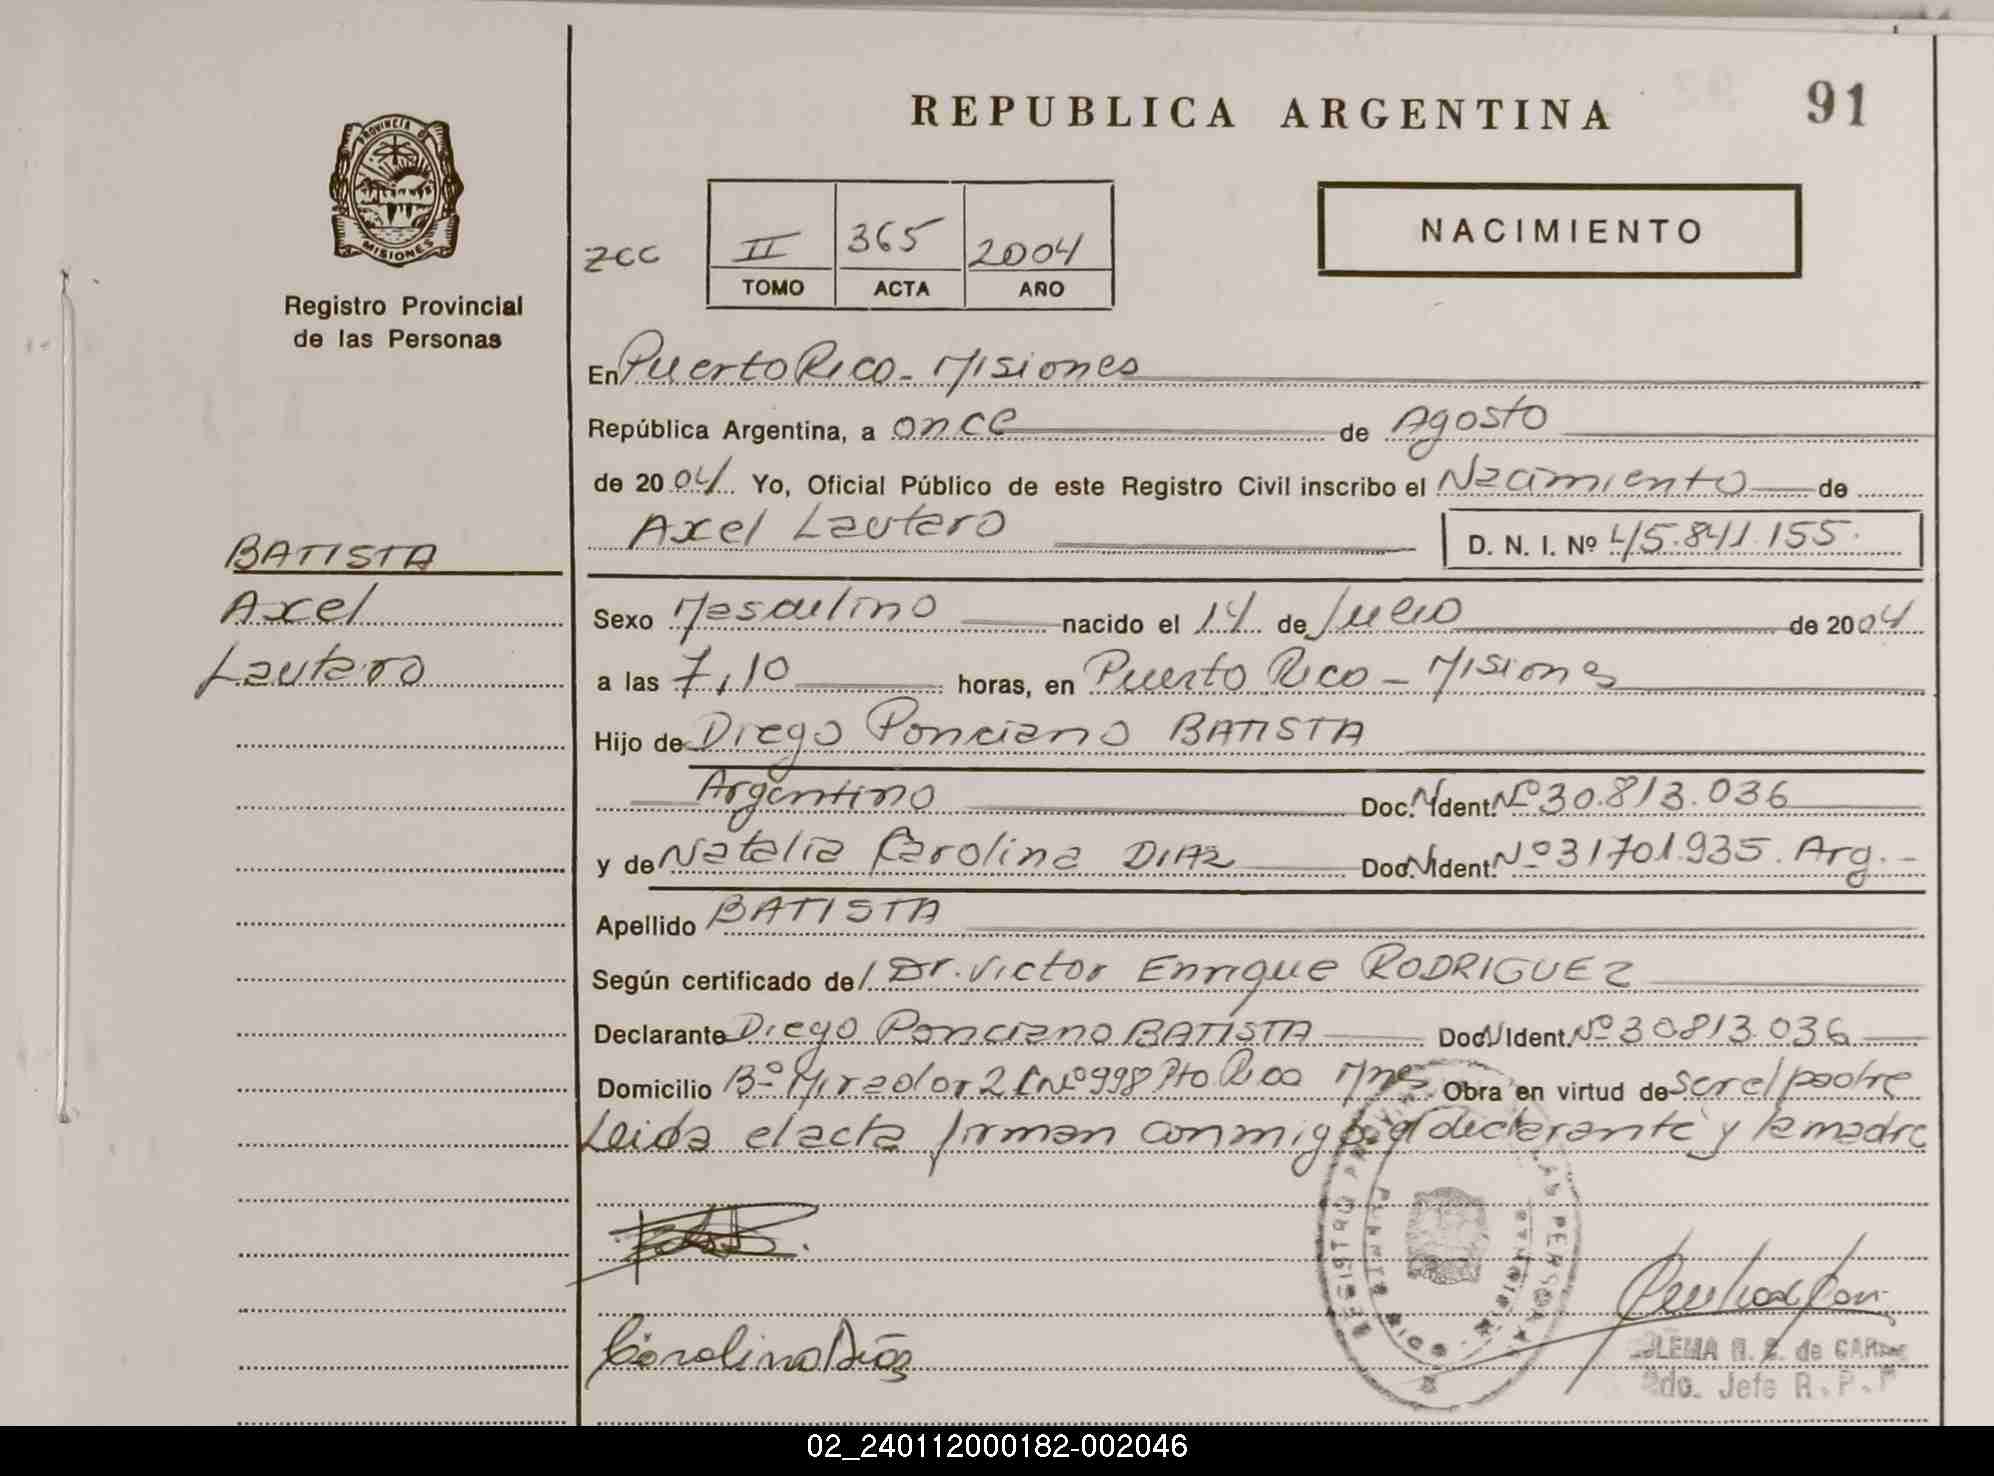 REPUBLICA ARGENTINA
91
PROVINCIA DE
MISIONES
Registro Provincial
de las Personas
zcc
II 365 2004
TOMO ACTA AÑO
NACIMIENTO
En Puerto Rico - Misiones
República Argentina, a once de Agosto
de 2004 Yo, Oficial Público de este Registro Civil inscribo el Nacimiento de
Axel Lautaro D. N. I. Nº 45.841.155.
BATISTA
Axel
Lautaro
Sexo Masculino nacido el 14 de Julio de 2004
a las 7,10 horas, en Puerto Rico - Misiones
Hijo de Diego Ponciano BATISTA
Argentino Doc. N Ident. Nº 30.813.036
y de Natalia Carolina DIAZ Doc. N Ident. Nº 31701.935. Arg.-
Apellido BATISTA
Según certificado del Dr. Victor Enrique RODRIGUEZ
Declarante Diego Ponciano BATISTA Doc. N Ident. Nº 30813.036
Domicilio Bº Mirador 2 C Nº 998 Pto Rico Mnes Obra en virtud de ser el padre
Leida el acta firman conmigo el declarante y la madre
REGISTRO PROVINCIAL DE LAS PERSONAS
Carolina Díaz
N. E. de
Jefe R. P. P
02_240112000182-002046